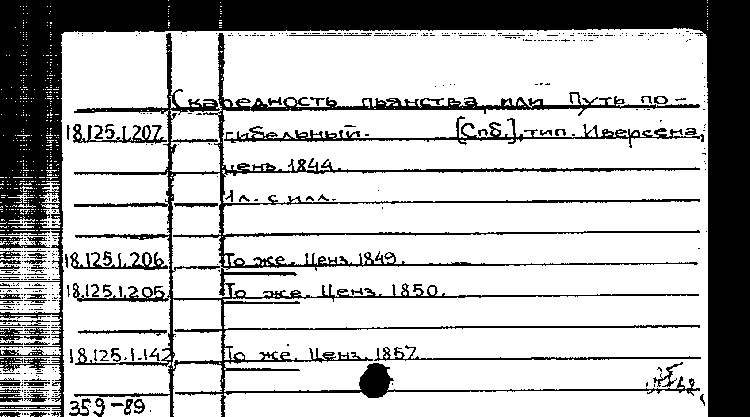 Скаредность пьянства, или Путь по-
18.125.1.207 гибельный. [Спб.], тип. Иверсена,
ценз. 1844.
1 л. с илл.
18.125.1.206 То же. Ценз. 1849.
18.125.1.205 То же. Ценз. 1850.
18.125.1.142 То же. Ценз. 1857.
359-89